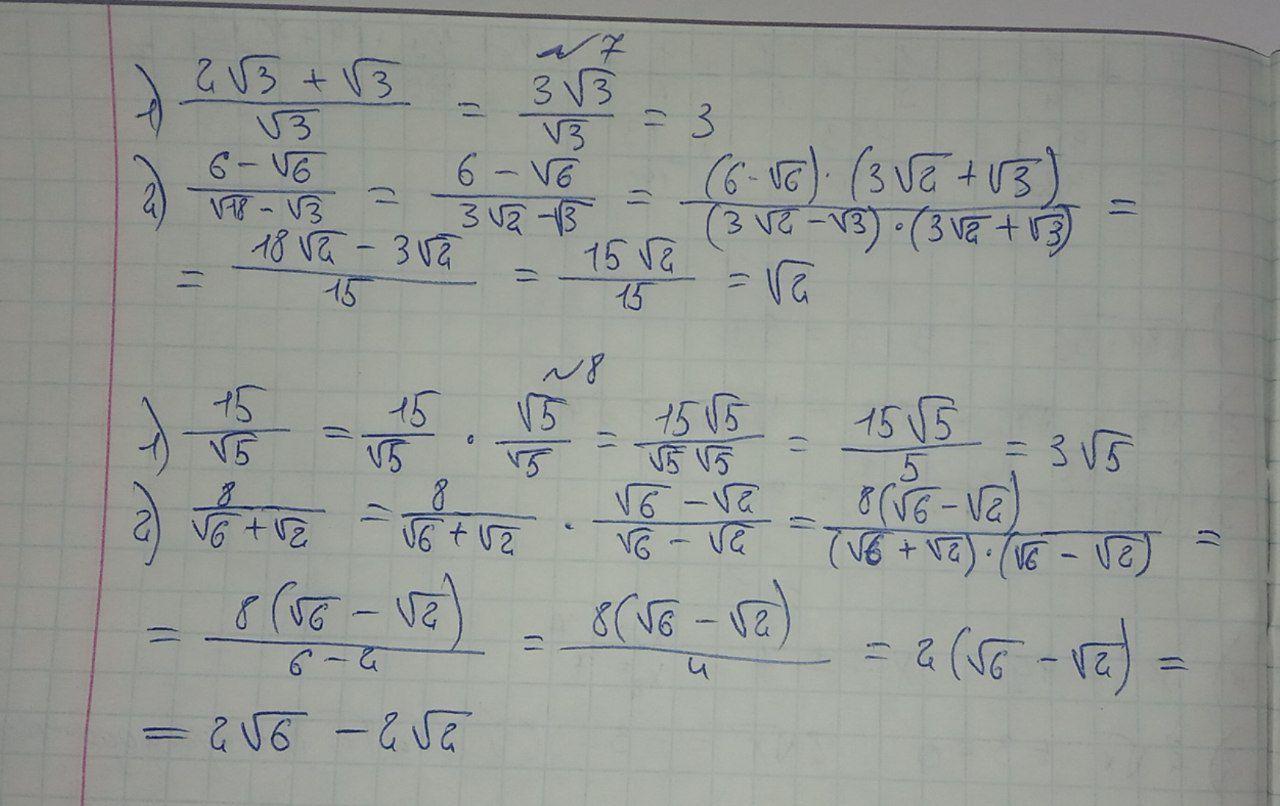 №7
1) (2√3 + √3)/√3 = 3√3/√3 = 3
2) (6 - √6)/(√18 - √3) = (6 - √6)/(3√2 - √3) = ((6 - √6) · (3√2 + √3))/((3√2 - √3) · (3√2 + √3)) =
= (18√2 - 3√2)/15 = 15√2/15 = √2
№8
1) 15/√5 = 15/√5 · √5/√5 = 15√5/√5√5 = 15√5/5 = 3√5
2) 8/(√6 + √2) = 8/(√6 + √2) · (√6 - √2)/(√6 - √2) = 8(√6 - √2)/((√6 + √2) · (√6 - √2)) =
= 8(√6 - √2)/(6 - 2) = 8(√6 - √2)/4 = 2(√6 - √2) =
= 2√6 - 2√2